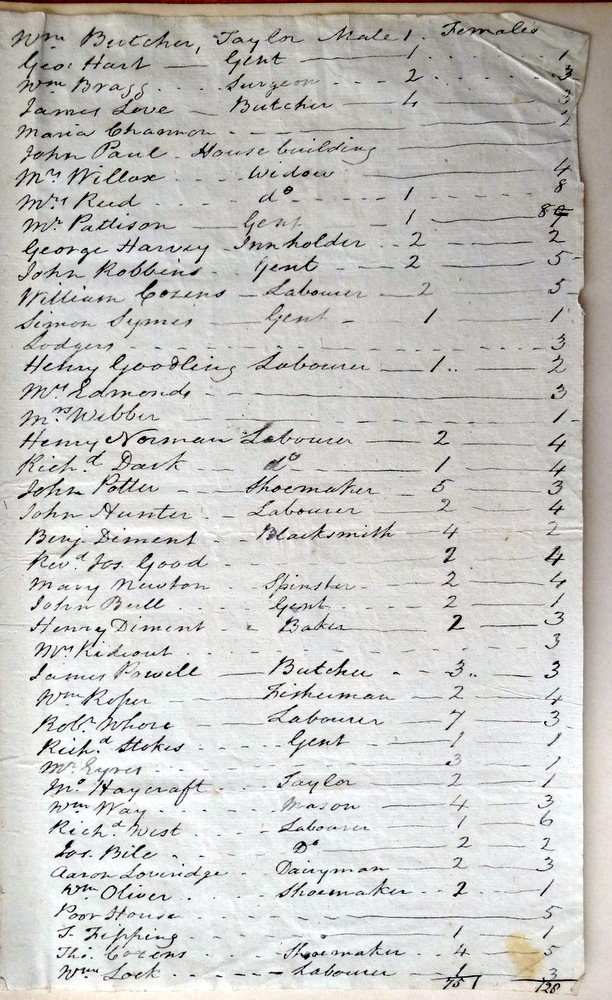 Wm Butcher, Taylor Male 1. Females
Geo. Hart — Gent — 1 . . . 1
Wm Bragg . . . Surgeon . . . 2 . . . 3
James Love — Butcher — 4 — 3
Maria Channon . - - - — 2
John Paul - House building —
Mrs Willox — Widow — 4
Mrs Reed . . do — 1 — 8
Mr Pattison — Gent — 1 —
George Harvey - Innholder . - 2 — 2
John Robbins . - Gent - - - 2 — 5
William Cozens — Labourer — 2 5
Simon Symes — Gent - 1 — 1
Lodgers . - - - 3
Henry Goodling Labourer — 1 . . - 2
Mrs Edmonds - - - 3
Mrs Webber — 1
Henry Norman - Labourer — 2 4
Richd Dark — do — 1 — 4
John Potter — Shoemaker — 5 3
John Hunter - . Labourer 2 — 4
Benj. Diment — Blacksmith — 4 — 2
Revd Jos. Good — 2 — 4
Mary Newton . Spinster - . 2 — 4
John Bull . . . Gent . . 2 — 1
Henry Diment . Baker — 2 — 3
Mrs Rideout . . . 3
James Prewell — Butcher - - 3 . . — 3
Wm Roper — Fisherman — 2 — 4
Robt Whore — Labourer — 7 — 3
Richd Stokes . . . Gent — 1 — 1
Mr Eyres . . . 3 1
Jno Haycraft . . Taylor — 2 — 1
Wm Way . . . Mason — 4 — 3
Richd West . . Labourer 1 — 6
Jos. Bile . . . Do — 2 2
Aaron Loveridge . . Dairyman — 2 — 3
Wm Oliver . . . Shoemaker . . 2 . — 1
Poor House . . . 5
T. Fipping - . . 1 — 1
Tho. Cozens . . Shoemaker . — 4 — 5
Wm Lock — Labourer — 1 3
128